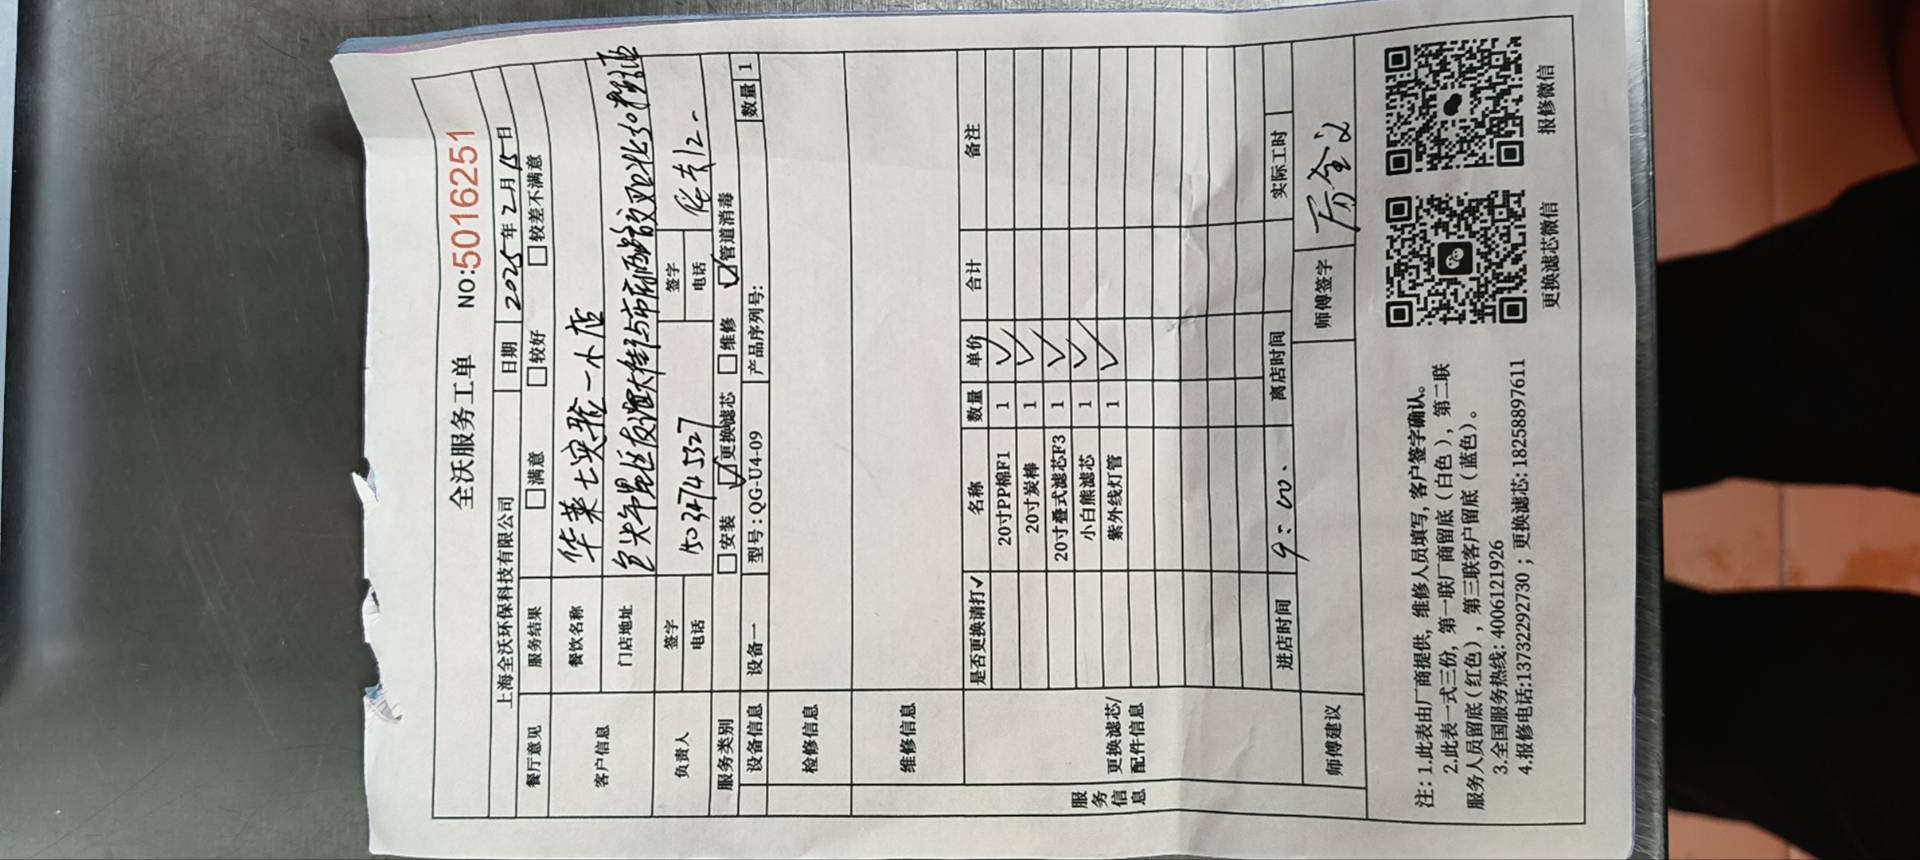 全沃服务工单 NO:5016251
上海全沃环保科技有限公司 日期 2025年2月15日
餐厅意见 服务结果 □满意 □较好 □较差不满意
客户信息 餐饮名称 华莱士实验一小店
门店地址 包头市昆区友谊大街与市府西路交
负责人 签字 签字
电话 15034745327 电话
服务类别 □安装 ☑更换滤芯 □维修 ☑管道消毒
设备信息 设备一 型号:QG-U4-09 产品序列号: 数量 1
检修信息
维修信息
服务信息
更换滤芯/配件信息
是否更换请打✓ 名称 数量 单价 合计 备注
20寸PP棉F1 1 ✓
20寸炭棒 1 ✓
20寸叠式滤芯F3 1 ✓
小白熊滤芯 1 ✓
紫外线灯管 1 ✓
进店时间 9:00. 离店时间 实际工时
师傅建议 师傅签字
注:1.此表由厂商提供,维修人员填写,客户签字确认。
2.此表一式三份,第一联厂商留底(白色),第二联
服务人员留底(红色),第三联客户留底(蓝色)。
3.全国服务热线:4006121926
4.报修电话:13732292730;更换滤芯:18258897611
更换滤芯微信 报修微信